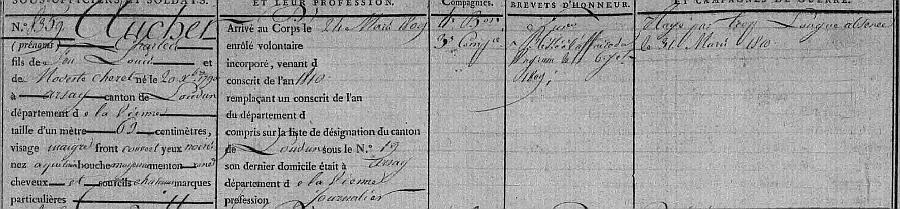 SOUS-OFFICIERS ET SOLDATS.
N.° 1339 Aucher
(prénoms) Charles
fils de feu Louis et
de Modeste Cheret né le 20 xbre 1790
à arsay canton de Loudun
département d e la Vienne
taille d'un mètre 69 centimètres,
visage maigre front couvert yeux noirs
nez aquilain bouche moyenne menton rond
cheveux et sourcils chatains marques
particulières
ET LEUR PROFESSION.
Arrivé au Corps le 24 Mars 1809
enrôlé volontaire
incorporé, venant d
conscrit de l'an 1810
remplaçant un conscrit de l'an
du département d
compris sur la liste de désignation du canton
de Loudun sous le N.° 19
son dernier domicile était à Arsay
département d e la Vienne
profession Journalier
Compagnies.
3e Comp.e
BREVETS D'HONNEUR.
Blessé à l'affaire de
Wagram le 6 Jet
1809
ET CAMPAGNES DE GUERRE.
Rayé par trop Longue absence
le 31 Mars 1810